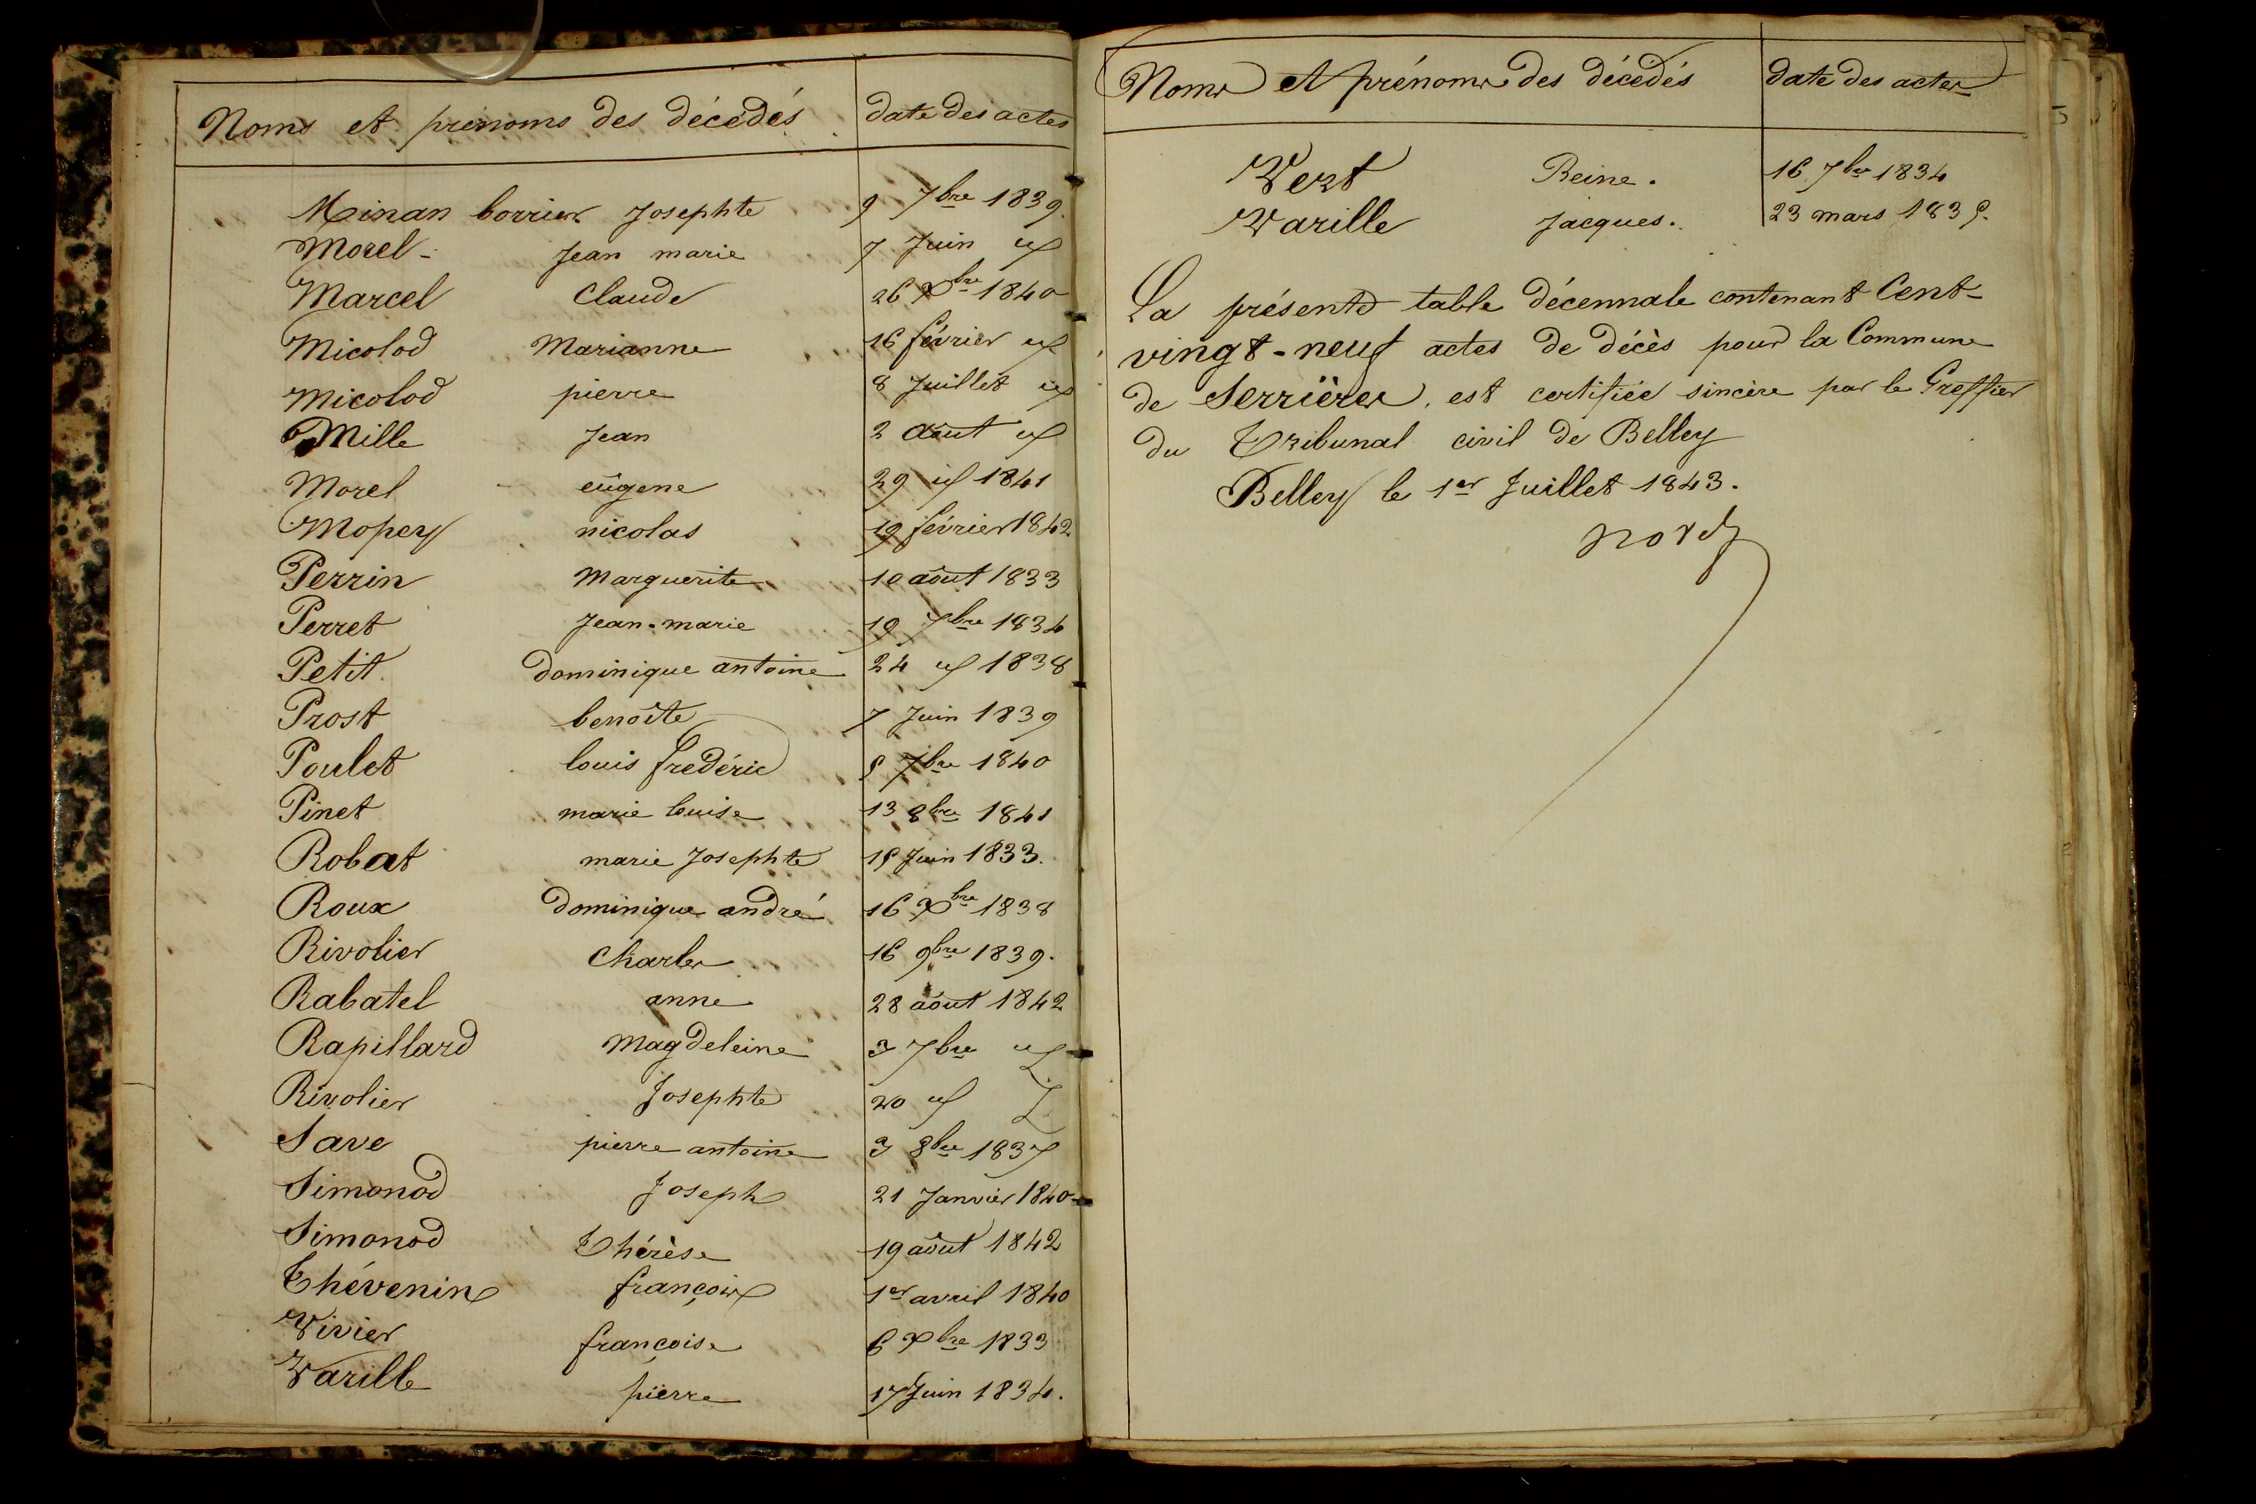 Noms et prénoms des décédés date des actes
Minan borrier Josephte 9 7bre 1839.
Morel Jean marie 7 Juin id
Marcel Claude 26 Xbre 1840
Micolod Marianne 16 février id
Micolod pierre 8 Juillet id
Mille Jean 2 août id
Morel eugene 29 id 1841
Mopey nicolas 19 février 1842
Perrin Marguerite 10 août 1833
Perret Jean-marie 19 7bre 1834
Petit dominique antoine 24 id 1838
Prost benoîte 7 Juin 1839
Poulet louis frédéric 5 7bre 1840
Pinet marie louise 13 8bre 1841
Robat marie Josephte 15 Juin 1833.
Roux dominique andré 16 Xbre 1838
Rivolier Charles 16 9bre 1839.
Rabatel anne 28 août 1842
Rapillard Magdeleine 3 7bre id
Rivolier Josephte 20 id
Save pierre antoine 3 8bre 1837
Simonod Joseph 21 Janvier 1840
Simonod Thérèse 19 août 1842
Thévenin françois 1er avril 1840
Vivier françoise 6 Xbre 1833
Varille pierre 17 Juin 1834.
Noms et prénoms des décédés date des actes
Vert Reine. 16 7bre 1834
Varille Jacques. 23 mars 1835.
La présente table décennale contenant Cent-
vingt-neuf actes de décès pour la Commune
de Serrières, est certifiée sincère par le Greffier
du Tribunal civil de Belley
Belley le 1er Juillet 1843.